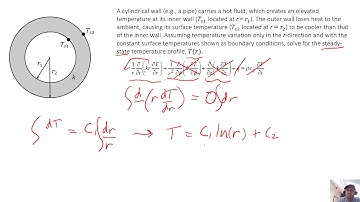 A cylindrical wall (e.g., a pipe) carries a hot fluid, which creates an elevated
temperature at its inner wall (T_{s1} located at r = r₁). The outer wall loses heat to the
ambient, causing its surface temperature (T_{s2} located at r = r₂) to be cooler than that
of the inner wall. Assuming temperature variation only in the r-direction and with the
constant surface temperatures shown as boundary conditions, solve for the steady-
state temperature profile, T(r).
T_{s1}
T_{s2}
r₁
r₂
k
∫ d/dr (r dT/dr) = 0∫dr
∫ dT = C₁∫dr/r → T = C₁ ln(r) + C₂